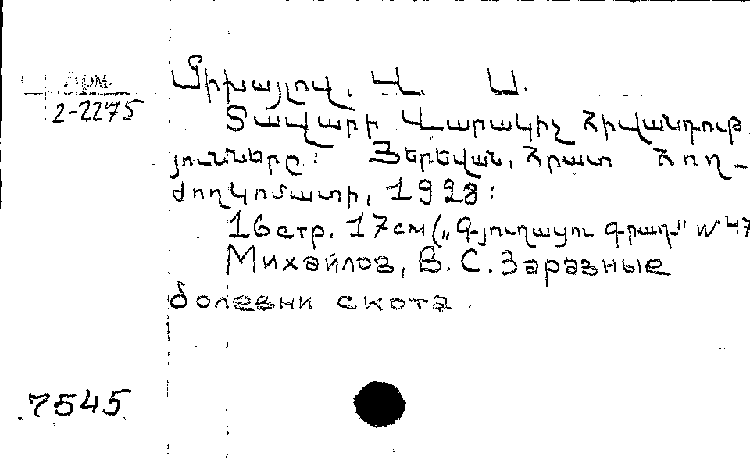 Арм.
2-2275
Միխայլով, Վ. Ս.
Տավարի վարակիչ հիվանդութ
յունները: Յերևան, Հրատ Հող-
ժողկոմատի, 1928:
16стр. 17см („Գյուղացու գրադ" № 47
Михайлов, В. С. Заразные
болезни скота.
7545